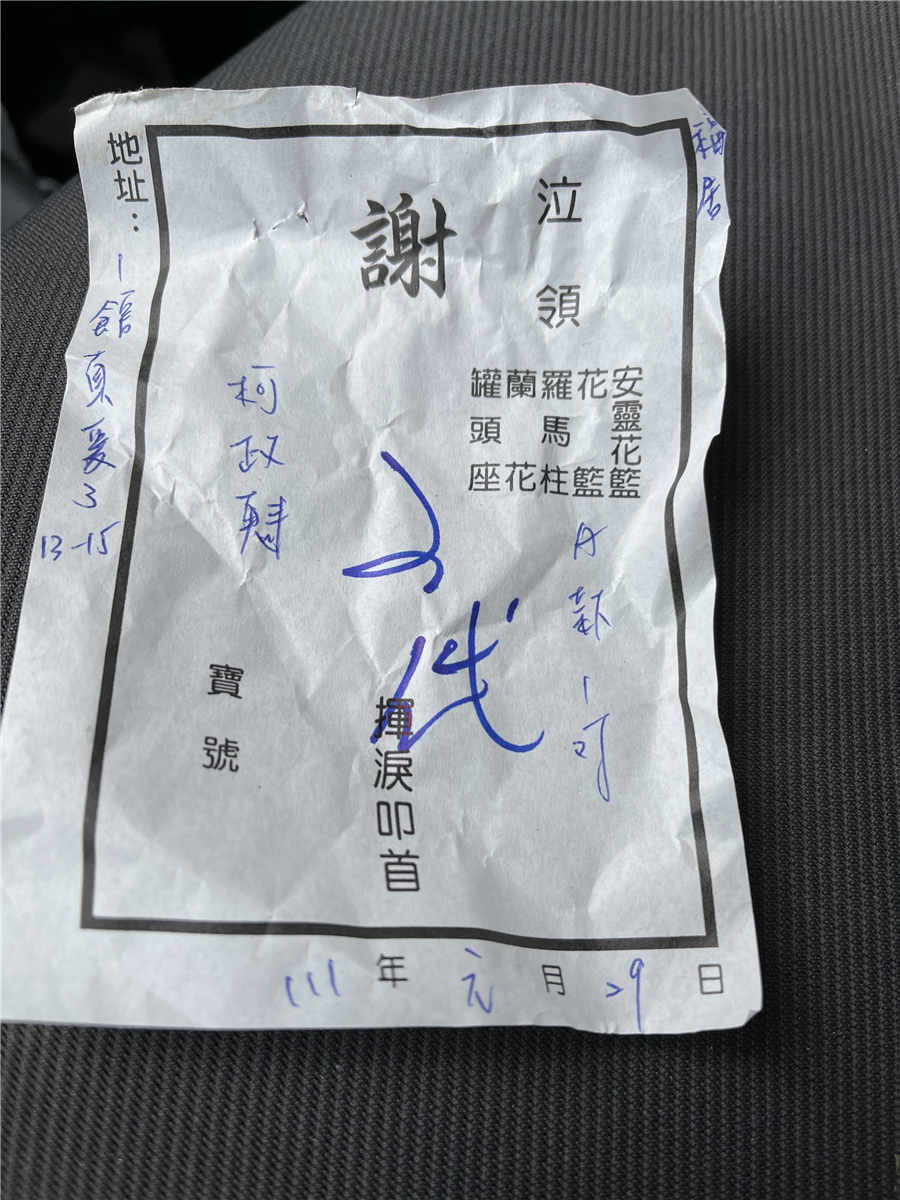 福居
泣領
安靈花籃
花籃
羅馬柱
蘭花
罐頭座
A
一
謝
代
揮淚叩首
柯政
寶號
地址：
1館真愛3
13-15
111年元月29日